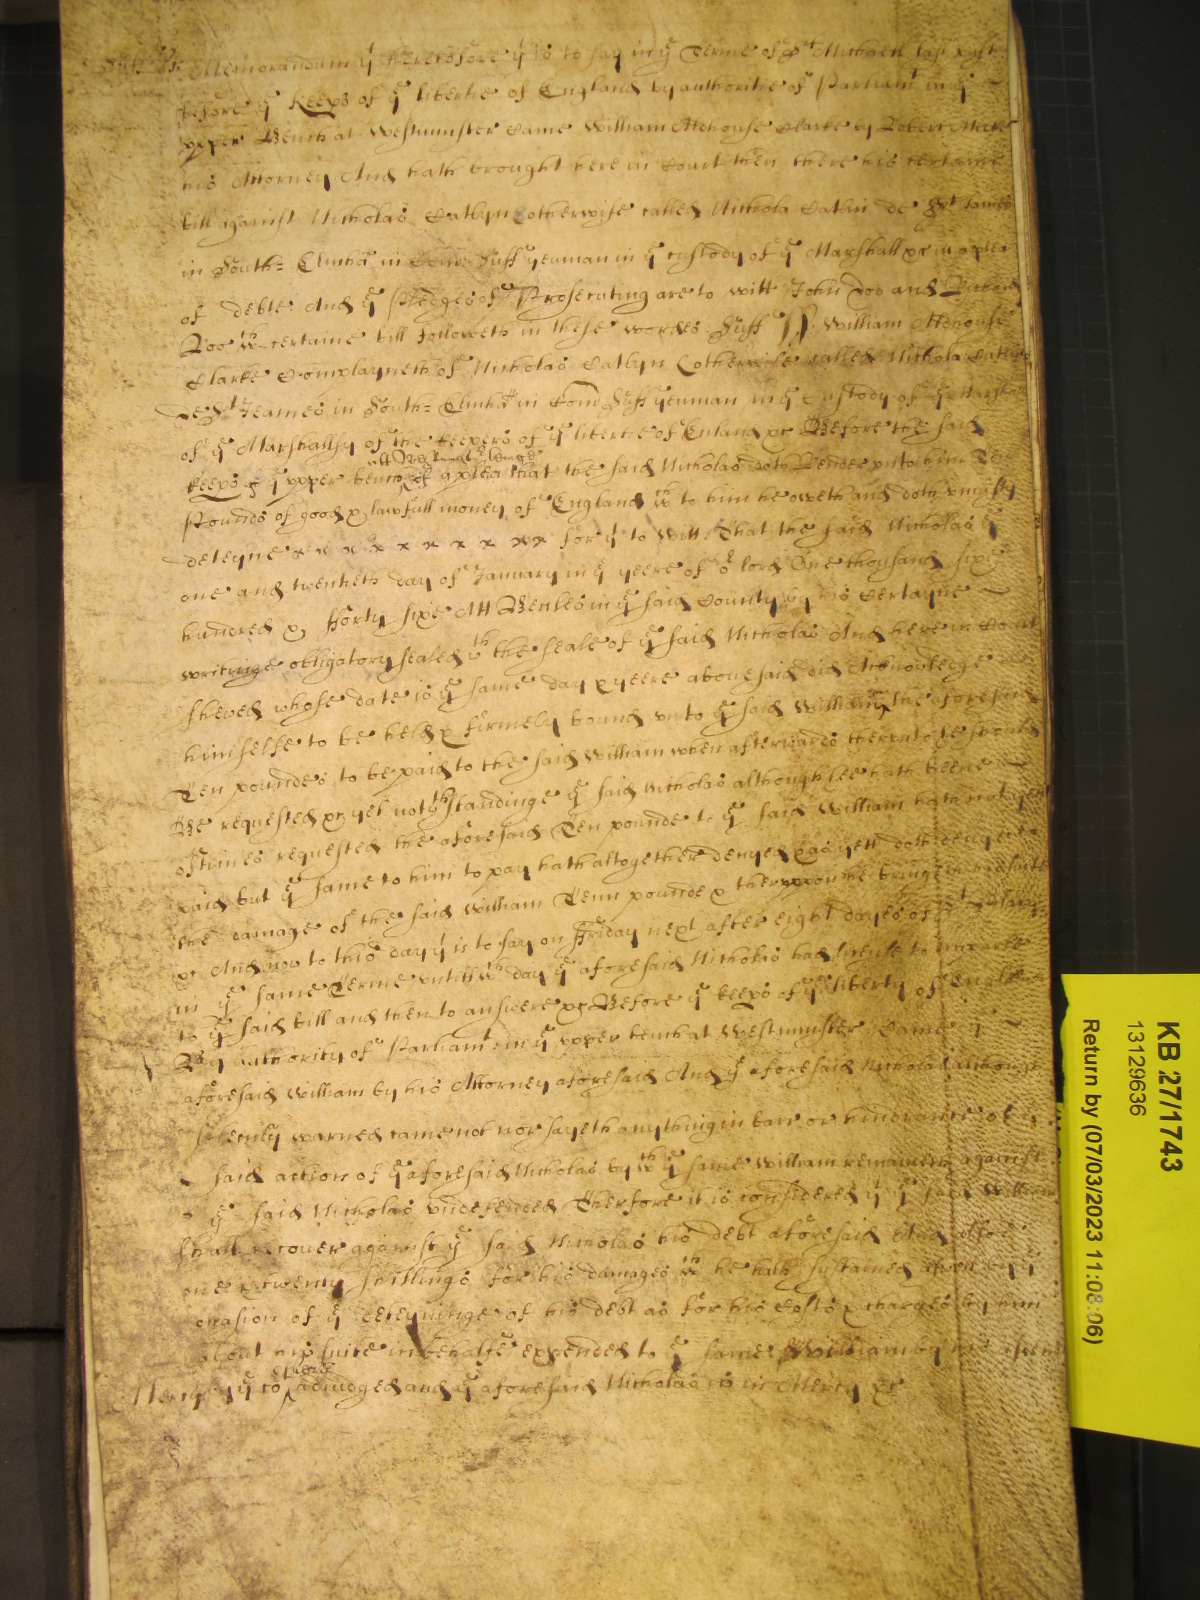 Suff ss Memorandum yt heretofore yt is to say in ye Terme of St Michaell last past
before ye keeps of ye libertie of England by authoritie of Parliamt in ye
vpper Bench at Westminster Came William Athouse Clarke by Robert
his Attorney And hath brought here in Court then there his certaine
bill against Nicholas Catlyn otherwise called Nichola Catlin de St James
in South= Elmhā in Com Suff yeuman in ye custody of ye Marshall &c in a plea
of debte And ye Pledges of Prosecuting are to witt John Doo and Richard
Roo wch certaine bill followeth in these wordes Suff ss William Athouse
Clarke Complayneth of Nicholas Catlyn (otherwise called Nichola Catlyn
De St Jeames in South= Elmhā in Com Suff yeuman in ye Custody of ye Marshall
of ye Marshallsy of the keepers of ye libertie of Enland &c Before the said
keeps of ye vpper bench of a plea that the said Nicholas doth Render vnto him Ten
Pounds of good & lawfull money of England wch to him he oweth and doth vniustly
deteyne x x x x x x x x xx for yt to Witt That the said Nicholas ye
one and twentieth day of January in ye yeere of or lord One thousand sixe
hundred & fforty sixe Att Beccles in ye said County by his Certayne
writinge obligatory sealed wth the seale of ye said Nicholas And here in Court
shewed whose date is ye same day & yeere abouesaid did Acknowledge
himselfe to be held & firmely bound vnto ye said William in the aforesaid
Ten poundes to be paid to the said William when afterwards therevnto he should
Be requested &c yet notwthstandinge ye said Nicholas although hee hath beene
oftimes requested the aforesaid Ten pounde to ye said William hath not yet
paid but ye same to him to pay hath altogether denyed & as yett doth denye to
the damage of the said William Tenn pounde & therevppon he bringeth his suite
&c And now to this day yt is to say on ffriday next after eight dayes of St Hillary
in ye same Terme vntill wch day ye aforesaid Nicholas had licence to imparle
to ye said bill and then to answere &c Before ye keeps of ye liberty of England
By authority of Parliamt in ye vpper bench at Westminster Came ye
aforesaid William by his Attorney aforesaid And ye aforesaid Nicholas although
solemly warned came not nor sayeth anything in barr or hindrance of ye
said action of ye aforesaid Nicholas by wch ye same William remaineth against
ye said Nicholas vndefended Therfore it is considered yt ye said William
shall recouer against ye said Nicholas his debt aforesaid And also
one & twenty shillings for his damages wch he hath sustained by
occasion of ye deteyninge of his debt as for his Costs & charges by him
about his suite in behalfe expended to ye same William by
Mercy ye Co adiudged and ye aforesaid Nicholas is in Mercy &c
KB 27/1743
13129636
Return by (07/03/2023 11:08:06)